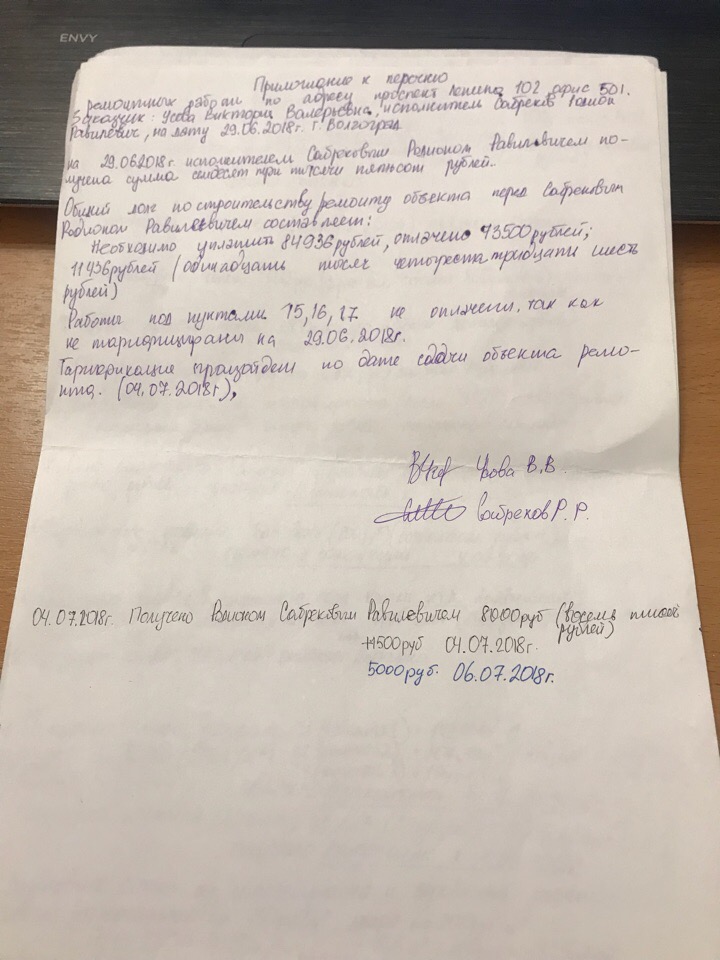 ENVY
Примечание к перечню
ремонтных работ по адресу проспект Ленина 102 офис 501.
Заказчик: Усова Виктория Валерьевна, исполнитель Сабреков Родион
Равилевич, на дату 29.06.2018г. г. Волгоград
на 29.06.2018г. исполнителем Сабрековым Родионом Равилевичем по-
лучена сумма семьдесят три тысячи пятьсот рублей.
Общий долг по строительству, ремонту объекта перед Сабрековым
Родионом Равилевичем составляет:
Необходимо уплатить 84936 рублей, оплачено 73500 рублей;
11436 рублей (одинадцать тысяч четыреста тридцать шесть
рублей)
Работы под пунктами 15, 16, 17 не оплачены, так как
не тарифицированы на 29.06.2018г.
Тарификация произойдет по дате сдачи объекта ремо-
нта. (04.07.2018г),
Усова В.В.
Сабреков Р.Р.
04.07.2018г. Получено Родионом Сабрековым Равилевичем 8000 руб (восемь тысяч
рублей)
+4500 руб 04.07.2018г.
5000 руб. 06.07.2018г.